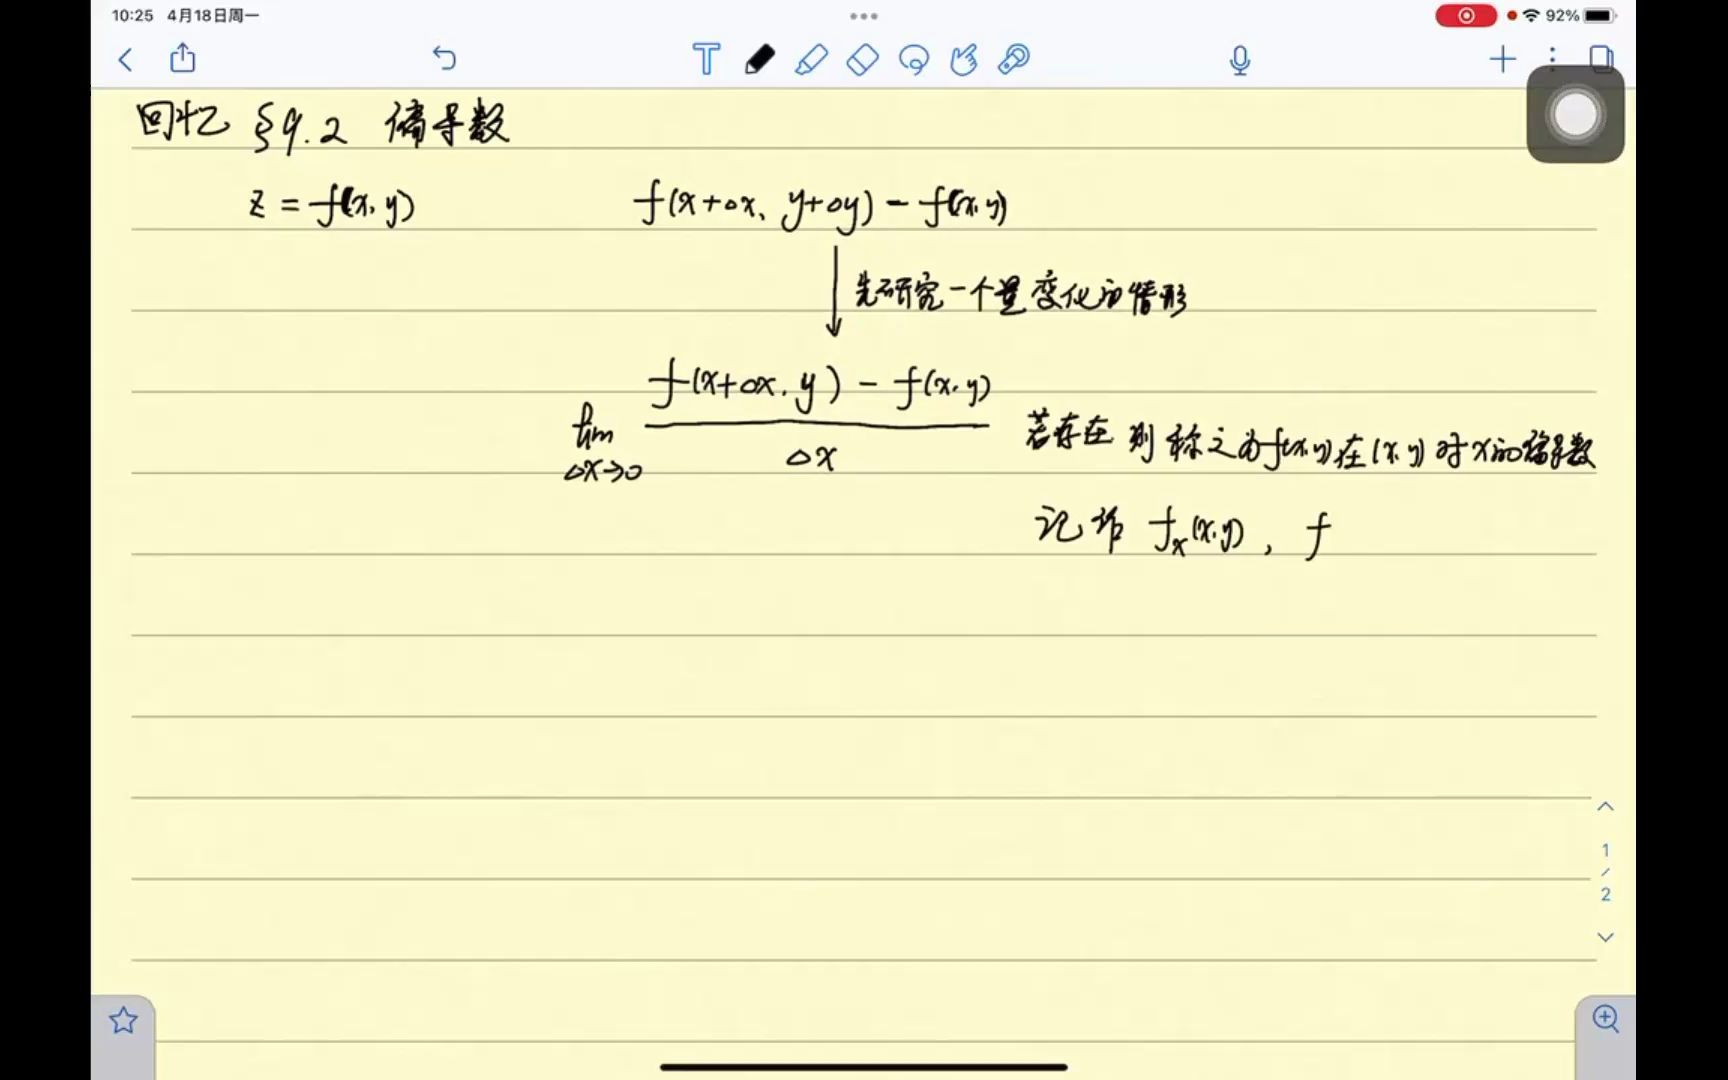 10:25 4月18日周一
92%
回忆 §9.2 偏导数
z = f(x, y) f(x+△x, y+△y) - f(x, y)
先研究一个量变化的情形
f(x+△x, y) - f(x, y)
lim
△x→0
△x
若存在 则称之为f(x,y)在(x,y)对x的偏导数
记作 fₓ(x,y), f
1
/
2